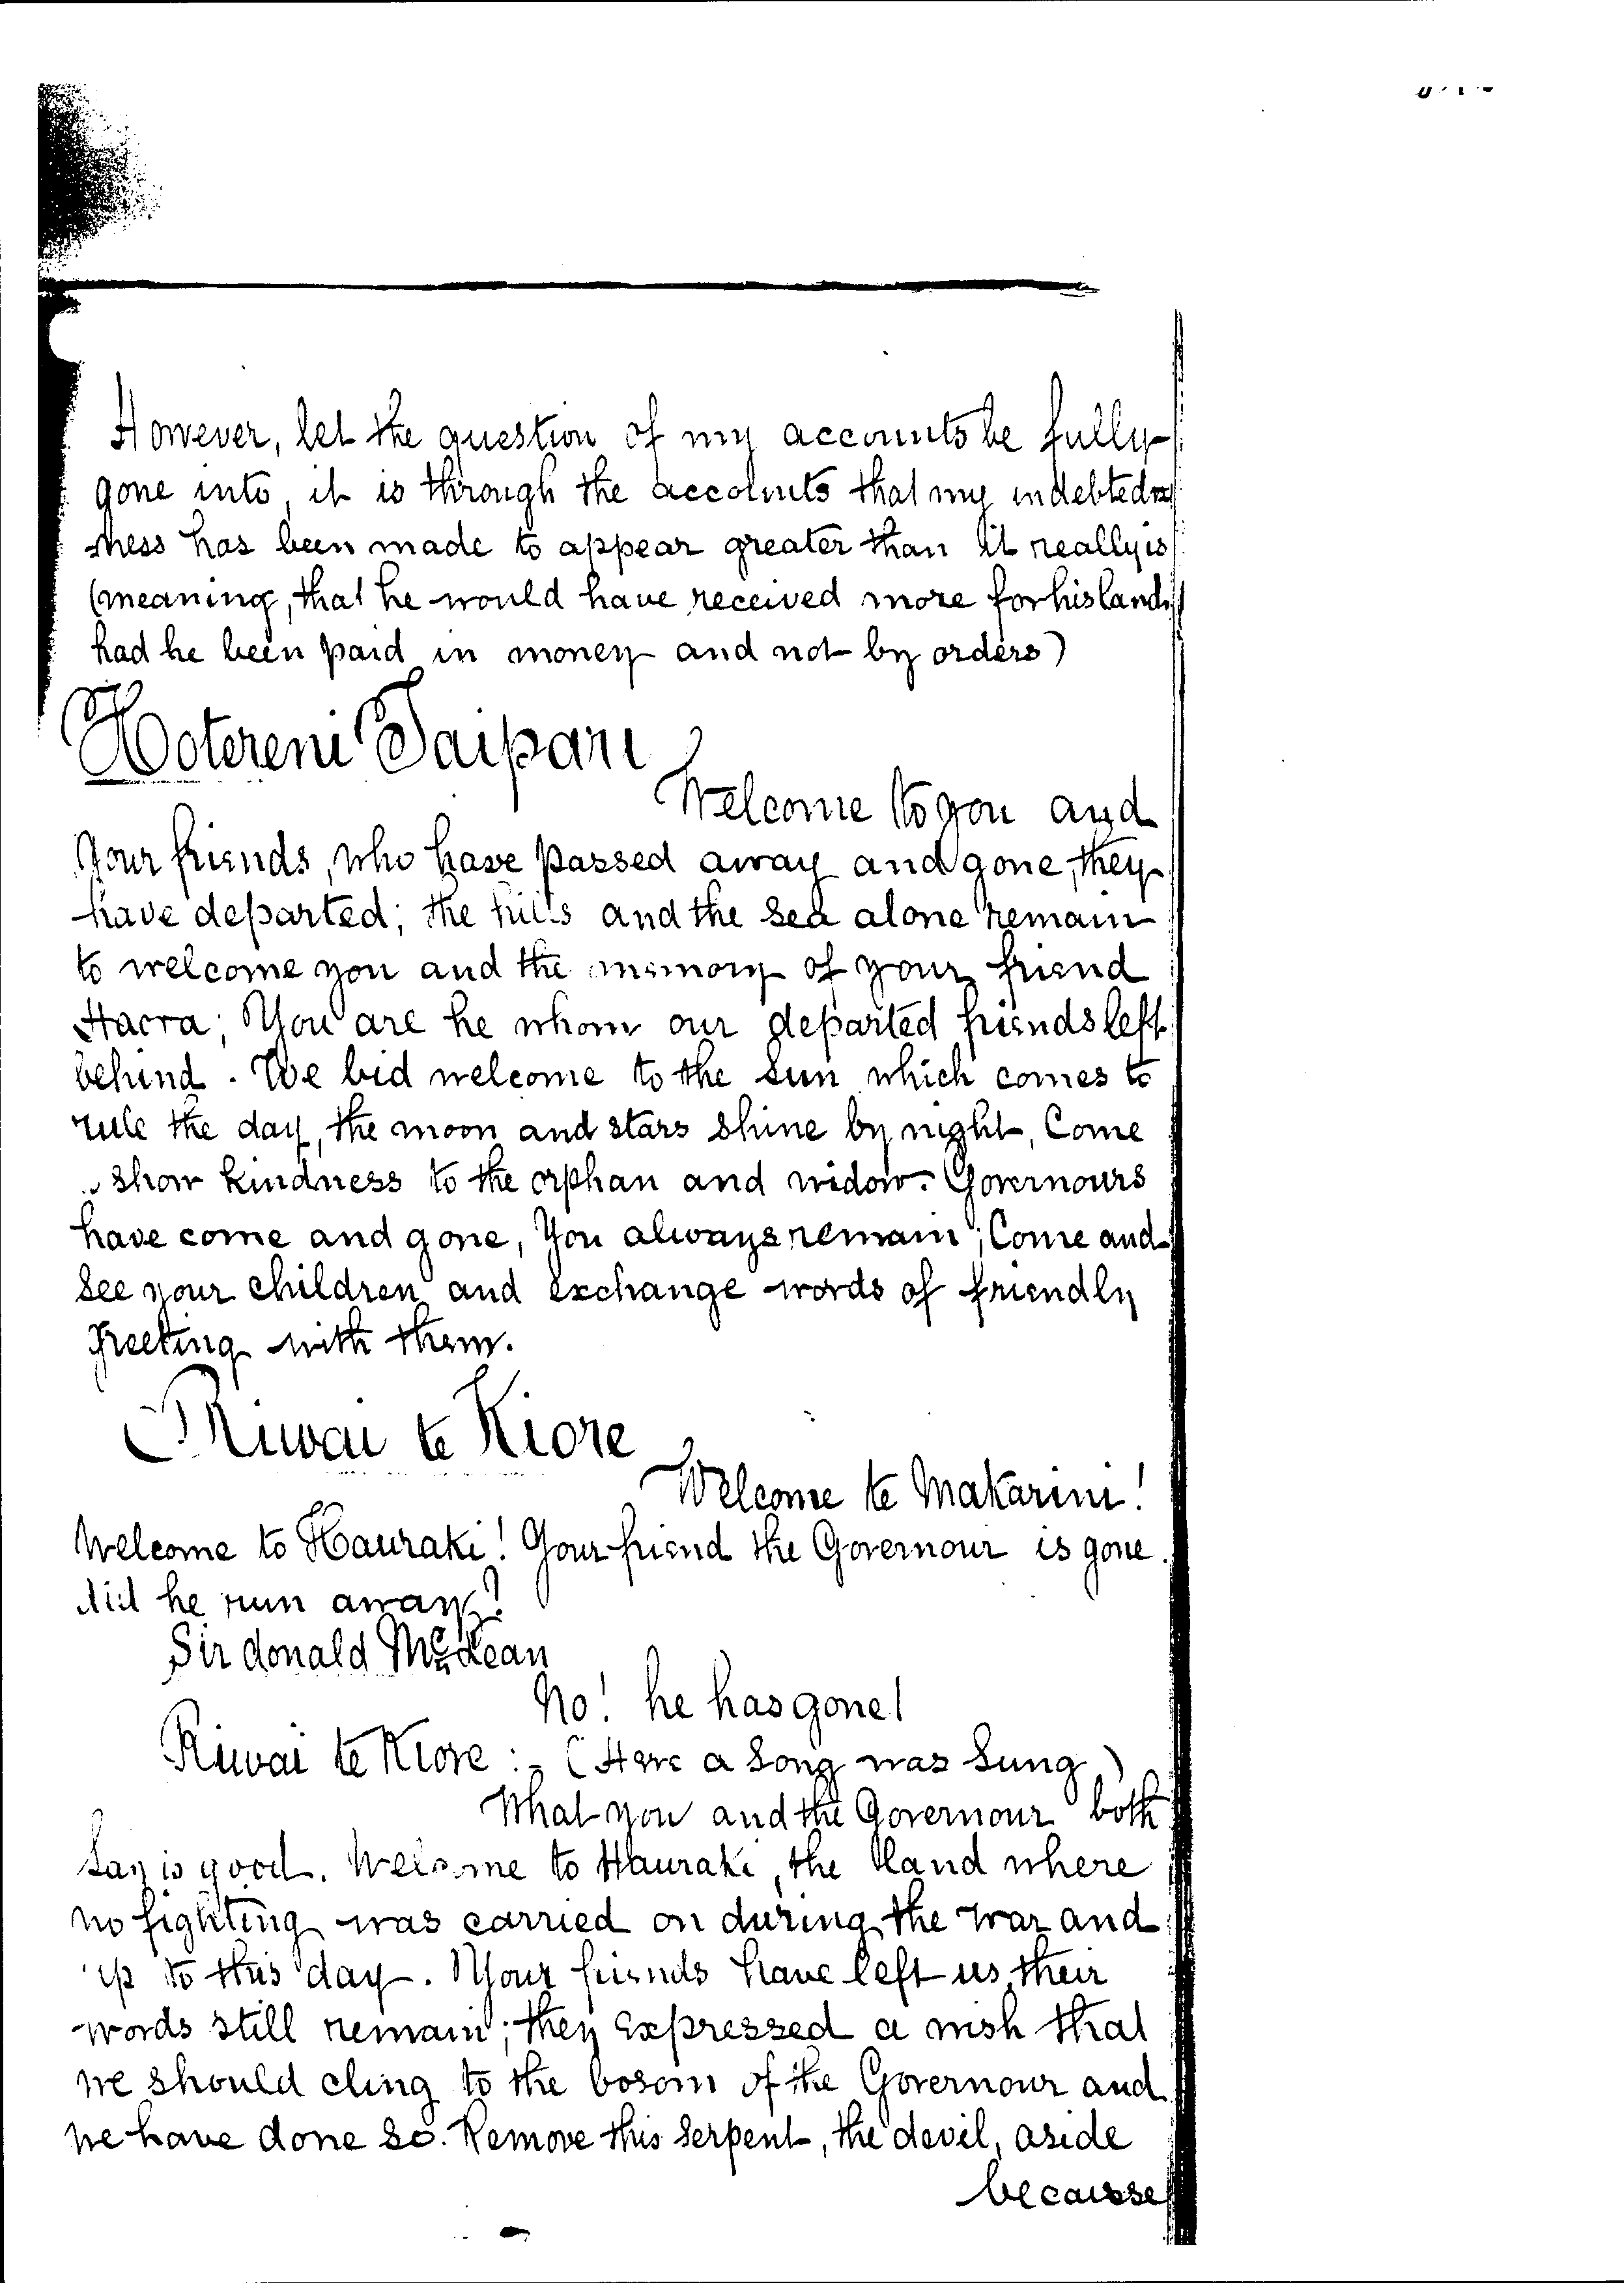 However, let the question of my accounts be fully
gone into, it is through the accounts that my indebted
ness has been made to appear greater than it really is
(meaning, that he would have received more for his land,
had he been paid in money and not by orders)
Hotereni Taipari
Welcome to you and
Your friends, who have passed away and gone, they
have departed; the hills and the sea alone remain
to welcome you and the memory of your friend
; You are he whom our departed friends left
behind. We bid welcome to the sun which comes to
rule the day, the moon and stars shine by night, Come
show kindness to the orphan and widow. Governours
have come and gone, You always remain; Come and
see your children and exchange words of friendly
greeting with them.
Riwai te Kiore
Welcome te Makarini!
Welcome to Hauraki! Your friend the Governour is gone.
did he run away?
Sir donald McLean
No! he has gone!
Riwai te Kiore :- (Here a song was sung)
What you and the Governour both
say is good. Welcome to Hauraki, the land where
no fighting was carried on during the war and
up to this day. Your friends have left us, their
words still remain; they expressed a wish that
we should cling to the bosom of the Governour and
we have done so. Remove this serpent, the devil, aside
because